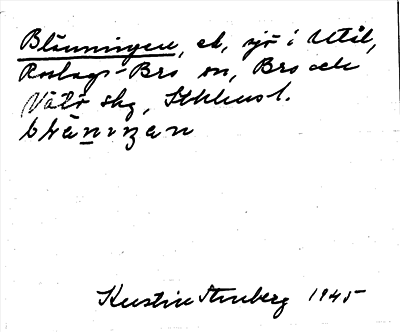 Blänningen, et, sjö i Utål,
Roslags-Bro sn, Bro och
Vätö skg, Sthlms l.
blä̀nıŋan
Kerstin Stenberg 1945